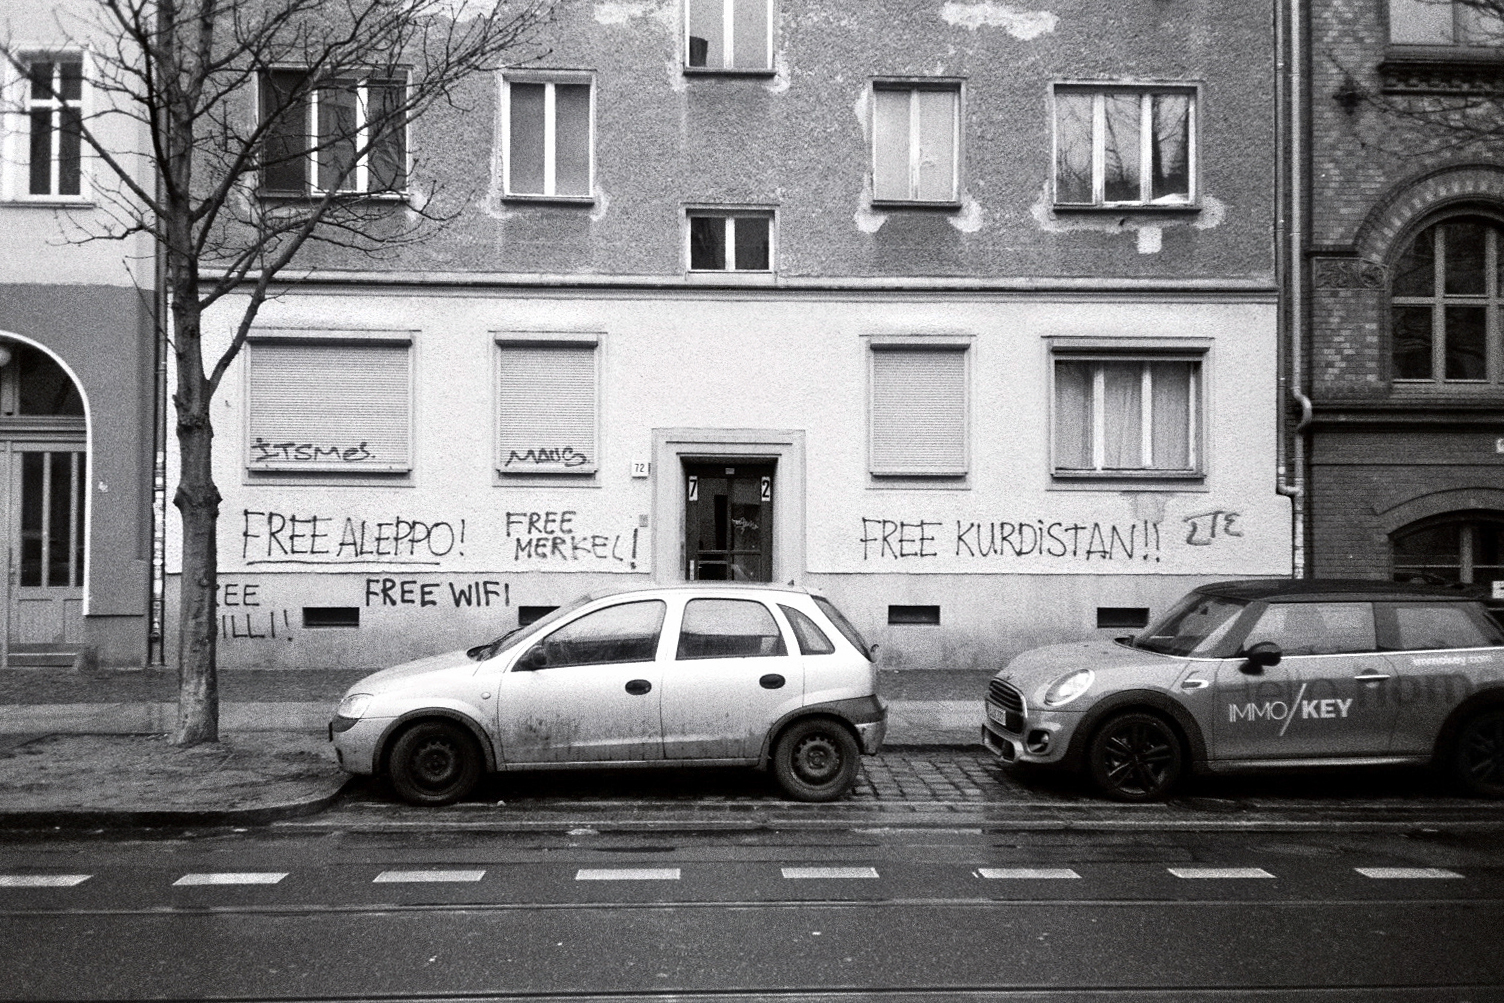 ITSMe's.
MAUS
72
7 2
FREE ALEPPO!
FREE
MERKEL!
FREE KURDiSTAN!!
FREE WIFI
EE
ILLI!
IMMO/KEY